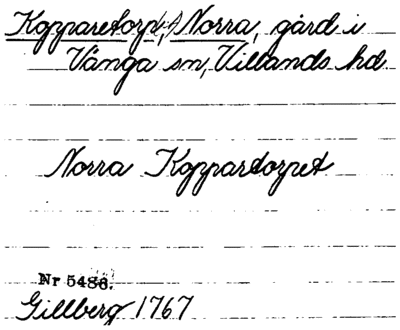 Kopparetorp(et), Norra, gård i
Vånga sn, Villands hd.
Norra Koppartorpet
Nr 5486.
Gillberg 1767